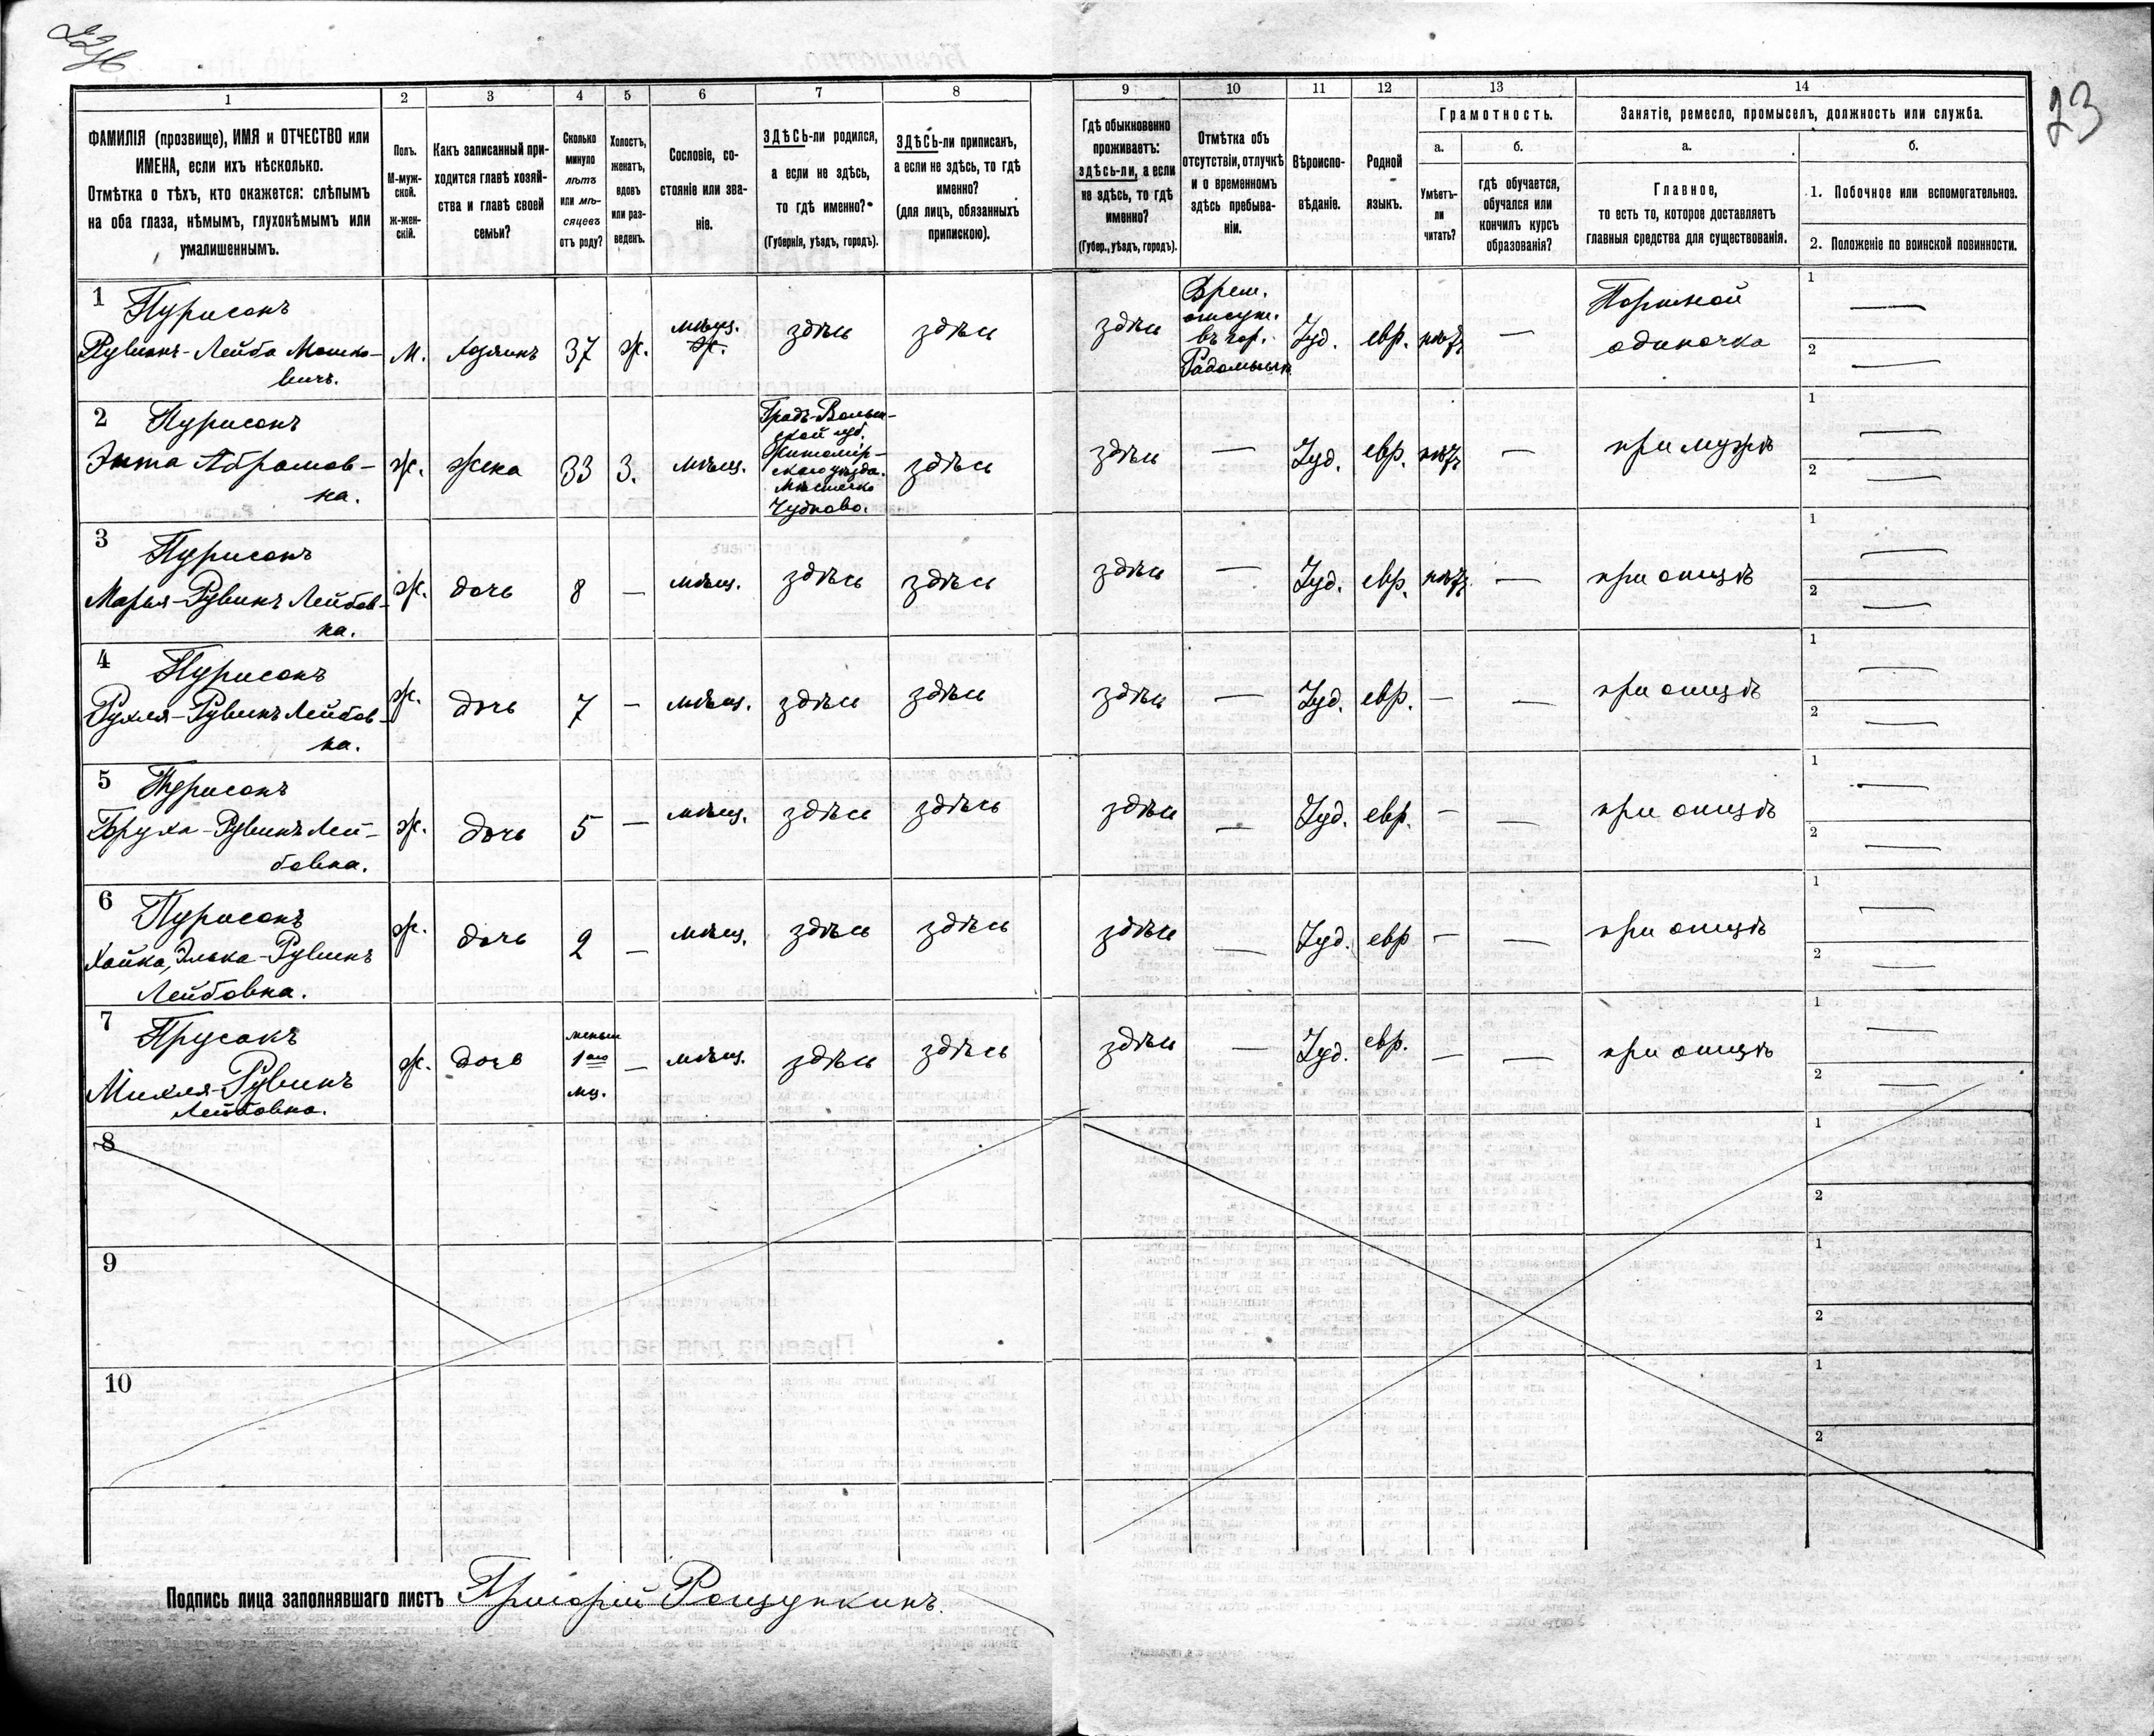 23
1 2 3 4 5 6 7 8 9 10 11 12 13 14
ФАМИЛІЯ (прозвище), ИМЯ и ОТЧЕСТВО или
ИМЕНА, если ихъ нѣсколько.
Отмѣтка о тѣхъ, кто окажется: слѣпымъ
на оба глаза, нѣмымъ, глухонѣмымъ или
умалишеннымъ.
Полъ.
М-муж-
ской.
ж-жен-
скій.
Какъ записанный при-
ходится главѣ хозяй-
ства и главѣ своей
семьи?
Сколько
минуло
лѣтъ
или мѣ-
сяцевъ
отъ роду?
Холостъ,
женатъ,
вдовъ
или раз-
веденъ.
Сословіе, со-
стояніе или зва-
ніе.
ЗДѢСЬ-ли родился,
а если не здѣсь,
то гдѣ именно?
(Губернія, уѣздъ, городъ).
ЗДѢСЬ-ли приписанъ,
а если не здѣсь, то гдѣ
именно?
(для лицъ, обязанныхъ
припискою).
Гдѣ обыкновенно
проживаетъ:
здѣсь-ли, а если
не здѣсь, то гдѣ
именно?
(Губер., уѣздъ, городъ).
Отмѣтка объ
отсутствіи, отлучкѣ
и о временномъ
здѣсь пребыва-
ніи.
Вѣроиспо-
вѣданіе.
Родной
языкъ.
Грамотность.
а.
Умѣетъ-
ли
читать?
б.
гдѣ обучается,
обучался или
кончилъ курсъ
образованія?
Занятіе, ремесло, промыселъ, должность или служба.
а.
Главное,
то есть то, которое доставляетъ
главныя средства для существованія.
б.
1. Побочное или вспомогательное.
2. Положеніе по воинской повинности.
1 Пурисонъ
Рувинъ-Лейба Мошко-
вичъ.
М. хозяинъ 37 ж. мѣщ. здѣсь здѣсь
здѣсь
Врем.
отсут.
въ гор.
Радомысль
Іуд. евр. нѣтъ —
Портной
одиночка
1 —
2 —
2 Пурисонъ
Энта Абрамов-
на.
Ж. жена 33 З. мѣщ.
Житомір-
скаго уѣзда.
Мѣстечко
Чудново.
здѣсь здѣсь — Іуд. евр. нѣтъ — при мужѣ
1 —
2 —
3 Пурисонъ
Марья-Рувинъ Лейбов-
на.
Ж. дочь 8 — мѣщ. здѣсь здѣсь здѣсь — Іуд. евр. нѣтъ — при отцѣ
1 —
2 —
4 Пурисонъ
Рухля-Рувинъ Лейбов-
на.
Ж. дочь 7 — мѣщ. здѣсь здѣсь здѣсь — Іуд. евр. — — при отцѣ
1 —
2 —
5 Пурисонъ
Бруха-Рувинъ Лей-
бовна.
Ж. дочь 5 — мѣщ. здѣсь здѣсь здѣсь — Іуд. евр. — — при отцѣ
1 —
2 —
6 Пурисонъ
Хайка, Элька-Рувинъ
Лейбовна.
Ж. дочь 2 — мѣщ. здѣсь здѣсь здѣсь — Іуд. евр — — при отцѣ
1 —
2 —
7 Прусакъ
Михля-Рувинъ
Лейбовна.
Ж. дочь
меньше
1ого
мц.
— мѣщ. здѣсь здѣсь здѣсь — Іуд. евр. — — при отцѣ
1 —
2 —
8
1
2
9
1
2
10
1
2
Подпись лица заполнявшаго листъ Григорій Рощупкинъ.